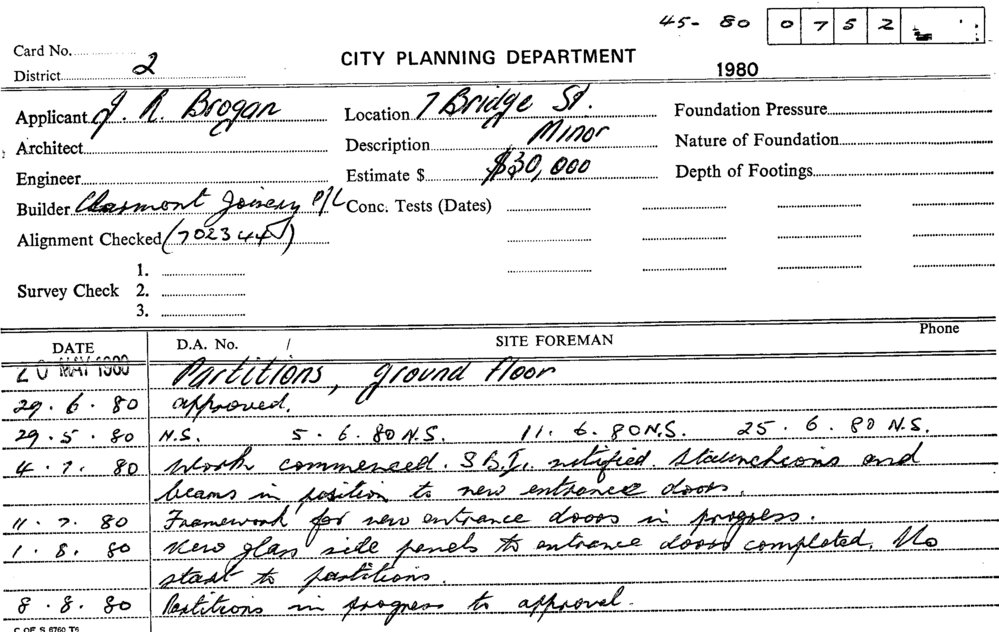 45-80 0752
Card No.
District 2
CITY PLANNING DEPARTMENT
1980
Applicant J. R. Brogan
Location 7 Bridge St.
Foundation Pressure
Architect
Description Minor
Nature of Foundation
Engineer
Estimate $ $30,000
Depth of Footings
Builder Clarmont Joinery P/L
Conc. Tests (Dates)
Alignment Checked (702344)
Survey Check
1.
2.
3.
DATE D.A. No. / SITE FOREMAN Phone
20 MAY 1980 Partitions, ground floor
29.6.80 approved.
29.5.80 N.S. 5.6.80 N.S. 11.6.80 N.S. 25.6.80 N.S.
4.7.80 Work commenced. S.B.I. notified. Stauncheons and
beams in position to new entrance doors.
11.7.80 Framework for new entrance doors in progress.
1.8.80 New glass side panels to entrance doors completed. No
start to partitions.
8.8.80 Partitions in progress to approval.
C OF S 6760 T6